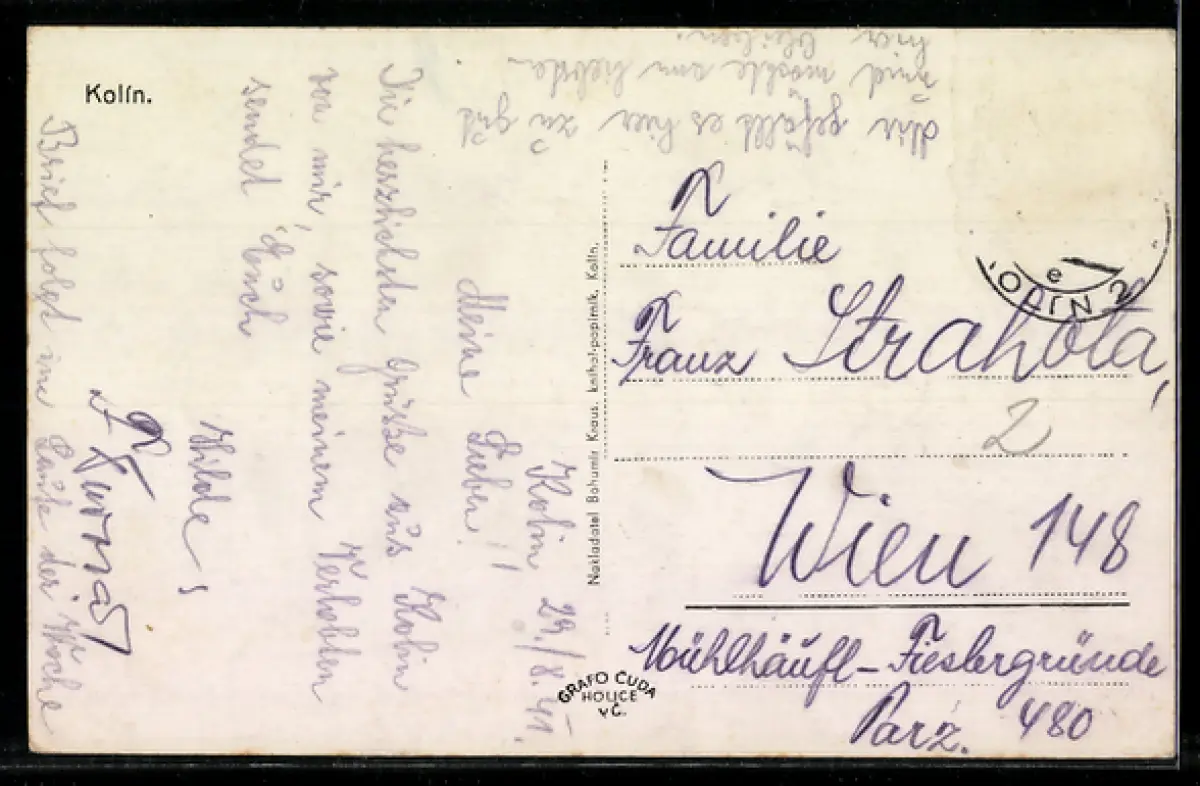 Kolín.
Kolin 29./8.41.
Meine Lieben!
Die herzlichsten Grüße aus Kolin
von mir, sowie meinem Verlobten
sendet Euch
Hilde,
Brief folgt im Laufe der Woche
Mir gefällt es hier zu gut
und möchte am liebsten
hier bleiben.
Nakladatel Bohumír Kraus, knihat-papírník, Kolín.
GRAFO ČUDA
HOLICE
v Č.
Familie
Franz Strahota,
2
Wien 148
Mühlhäufl-Fiesbergründe
Parz. 480